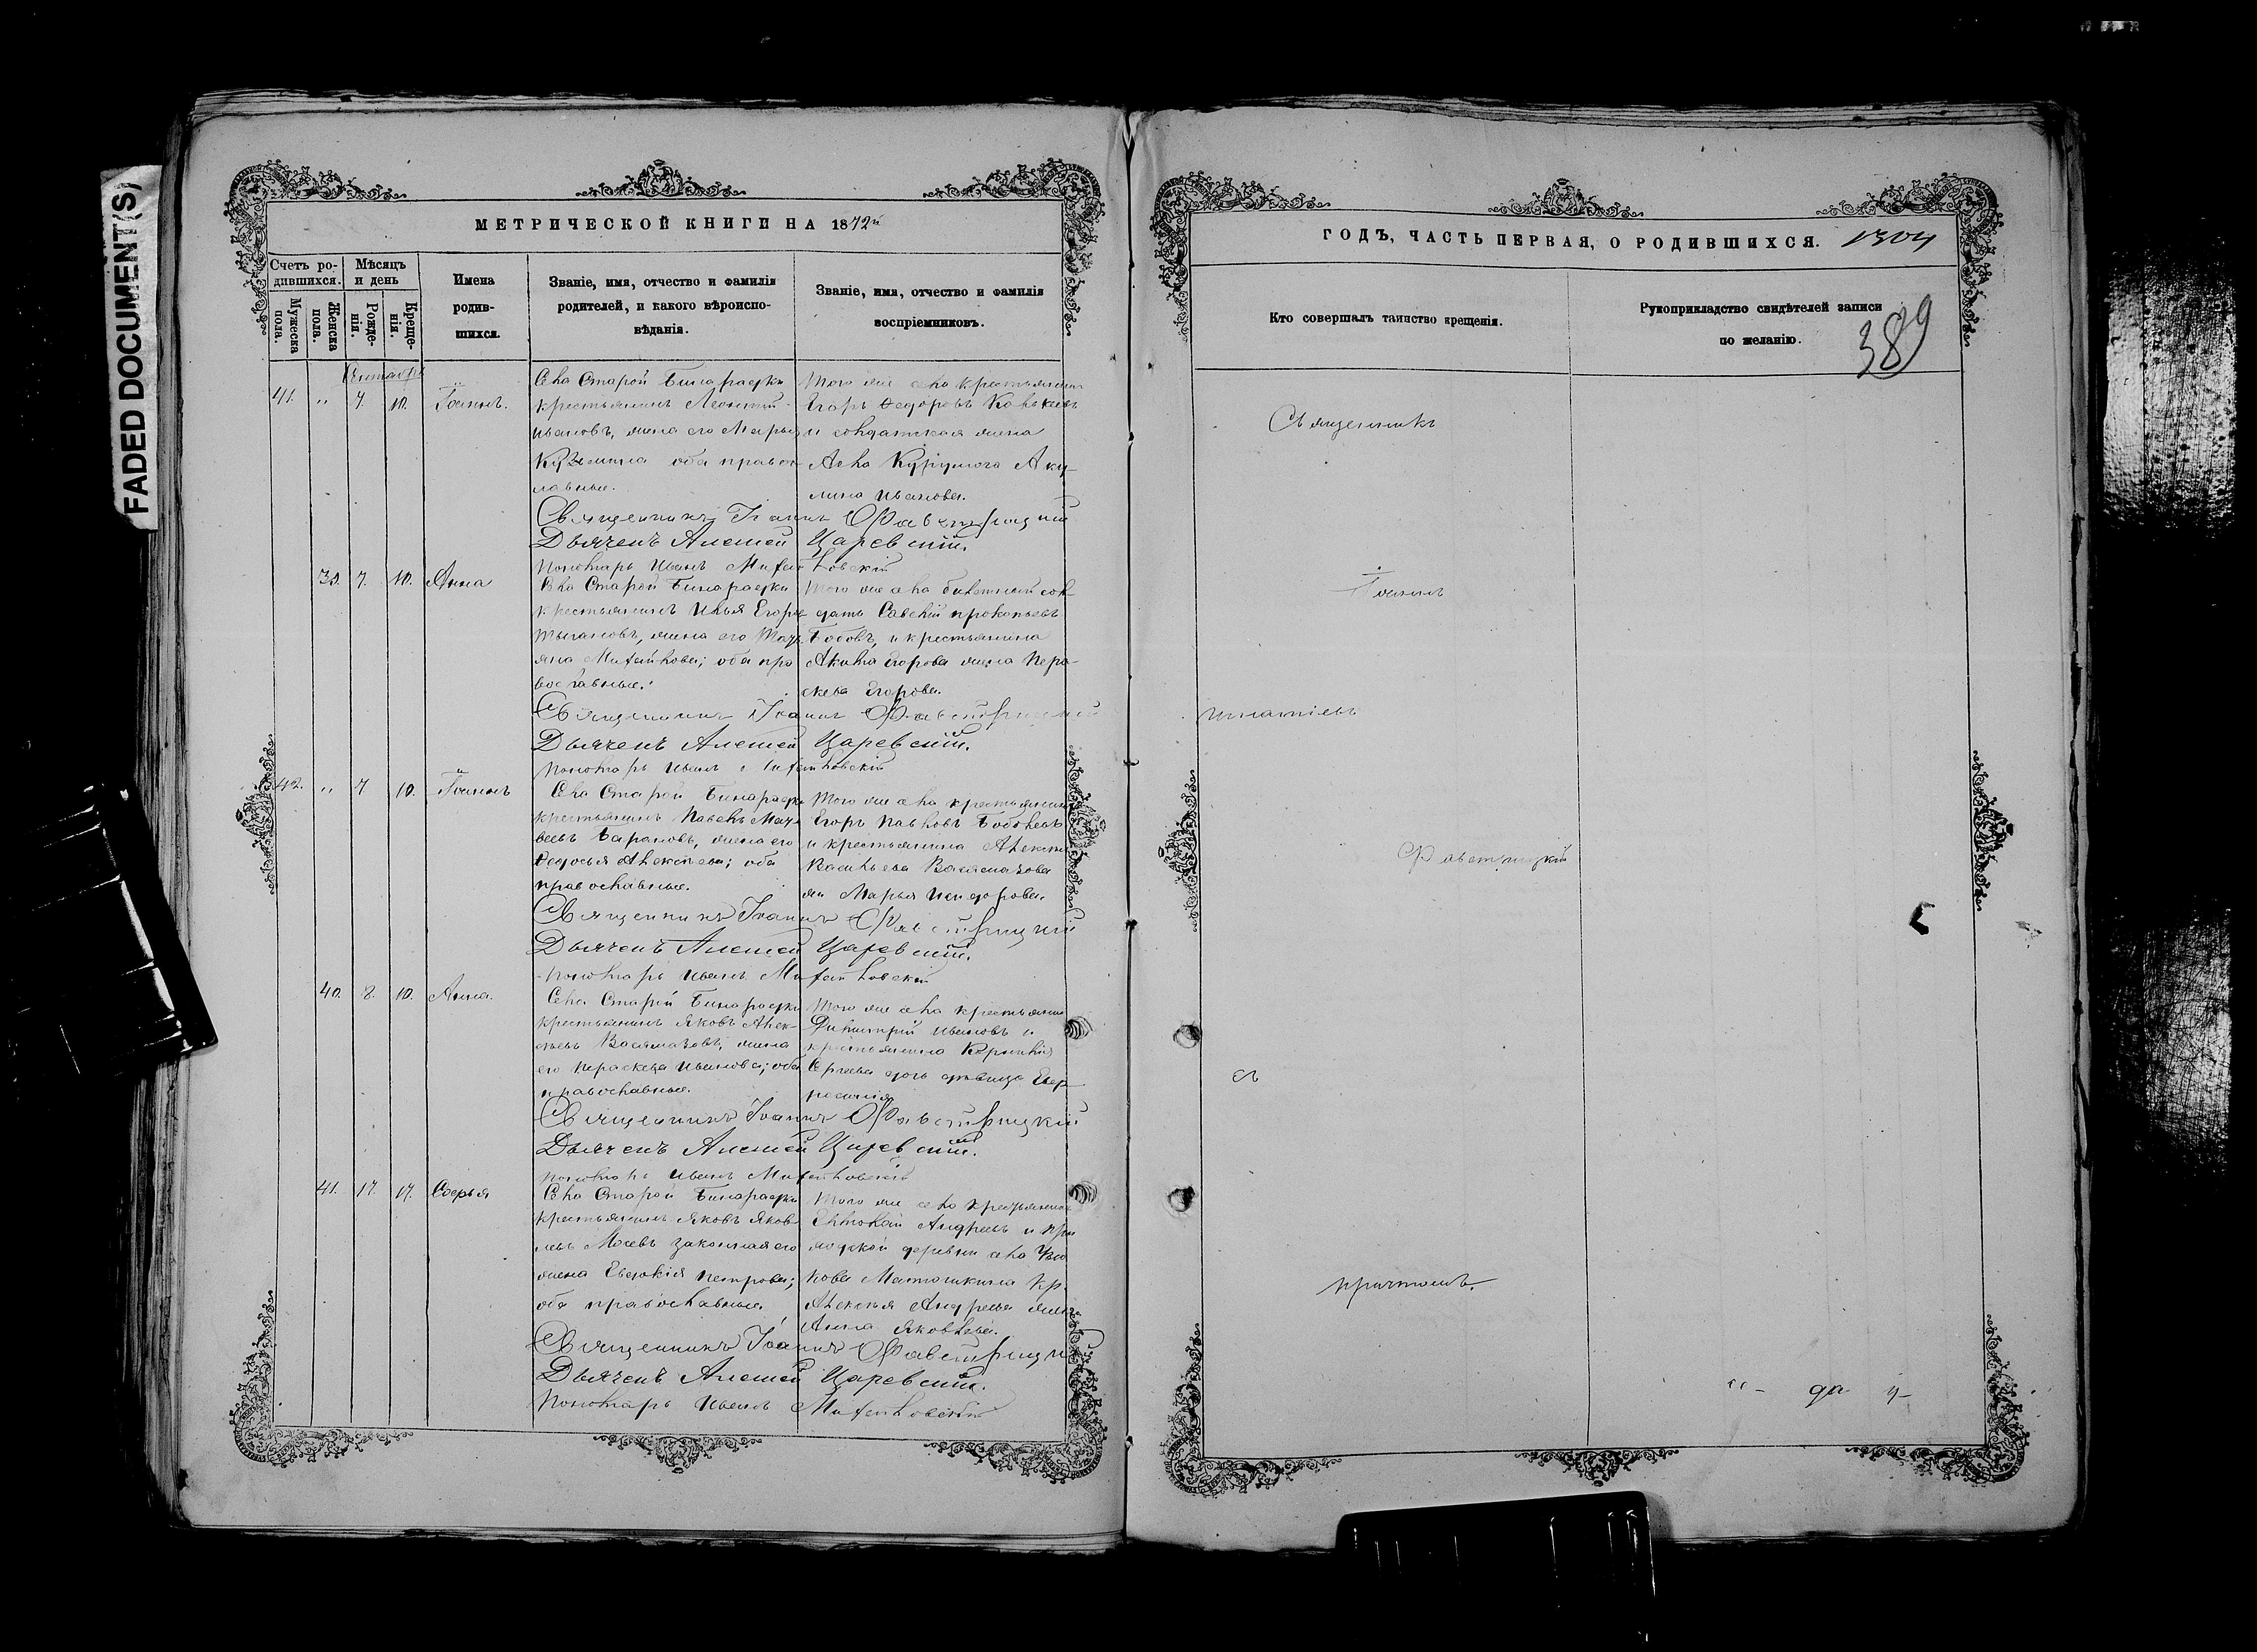 FADED DOCUMENT(S)
МЕТРИЧЕСКОЙ КНИГИ НА 1872й
Счетъ ро-
дившихся.
Мѣсяцъ
и день
Мужеска
пола.
Женска
пола.
Рожде-
нія.
Креще-
нія.
Имена
родив-
шихся.
Званіе, имя, отчество и фамилія
родителей, и какого вѣроиспо-
вѣданія.
Званіе, имя, отчество и фамилія
воспріемниковъ.
41. " 7. 10. Іоаннъ.
Села Старой Бинарадки
крестьянинъ Леонтій
Ивановъ, жена его Марья
Кузьмина оба право-
славные.
Того же села крестьянинъ
Егоръ Федоровъ
и солдатская жена
Аку-
лина Иванова.
Священникъ Іоаннъ
Дьячекъ Алексей Царевскій.
Пономарь Иванъ Михайловскій
7. 10. Анна
Села Старой Бинарадки
крестьянинъ Илья Егоро
Цыгановъ, жена его Тать
яна Михайлова; оба пра
вославные.
Того же села билетный сол
датъ Савелій Прокопьевъ
Бобовъ, и крестьянина
Акила Егорова жена Пера-
скева Егорова.
Священникъ Іоаннъ
Дьячекъ Алексей Царевскій.
Пономарь Иванъ Михайловскій
42. " 7 10. Іоаннъ
Села Старой Бинарадки
крестьянинъ Павелъ Мат
веевъ Барановъ, жена его
Федосья Алексеева; оба
православные.
Того же села крестьянинъ
Егоръ Павловъ
и крестьянина Алексея
Васильева
Марья
Священникъ Іоаннъ
Дьячекъ Алексей Царевскій.
Пономарь Иванъ Михайловскій
40. 8. 10. Анна.
Села Старой Бинарадки
крестьянинъ Яковъ Алек-
сеевъ жена
его Праскева Иванова; оба
православные.
Того же села крестьянинъ
Димитрій Ивановъ и
крестьянина
дочь девица Евф
росинія
Священникъ Іоаннъ
Дьячекъ Алексей Царевскій.
Пономарь Иванъ Михайловскій
41. 17. 17. Софья
Села Старой Бинарадки
крестьянинъ Яковъ Яков
левъ законная его
жена Евдокія Петрова;
оба православные.
Того же села крестьянинъ
Андреевъ и
деревни
Матюшкина кр.
Алексея Андреева жена
Анна Яковлева.
Священникъ Іоаннъ
Дьячекъ Алексей Царевскій.
Пономарь Иванъ Михайловскій
ГОДЪ, ЧАСТЬ ПЕРВАЯ, О РОДИВШИХСЯ.
389
Кто совершалъ таинство крещенія.
Рукоприкладство свидѣтелей записи
по желанію.
Священникъ
Іоаннъ
Игнатіевъ
съ
причтомъ.